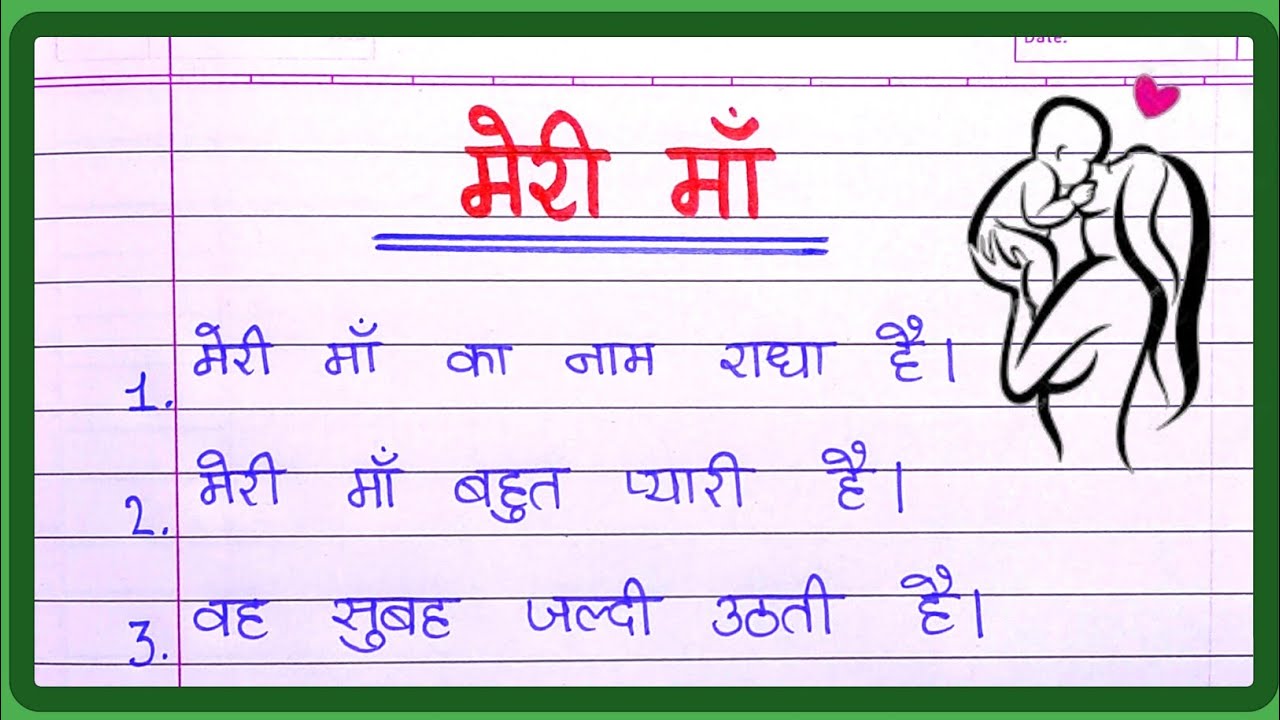 Date:
मेरी माँ
1. मेरी माँ का नाम राधा है।
2. मेरी माँ बहुत प्यारी है।
3. वह सुबह जल्दी उठती है।